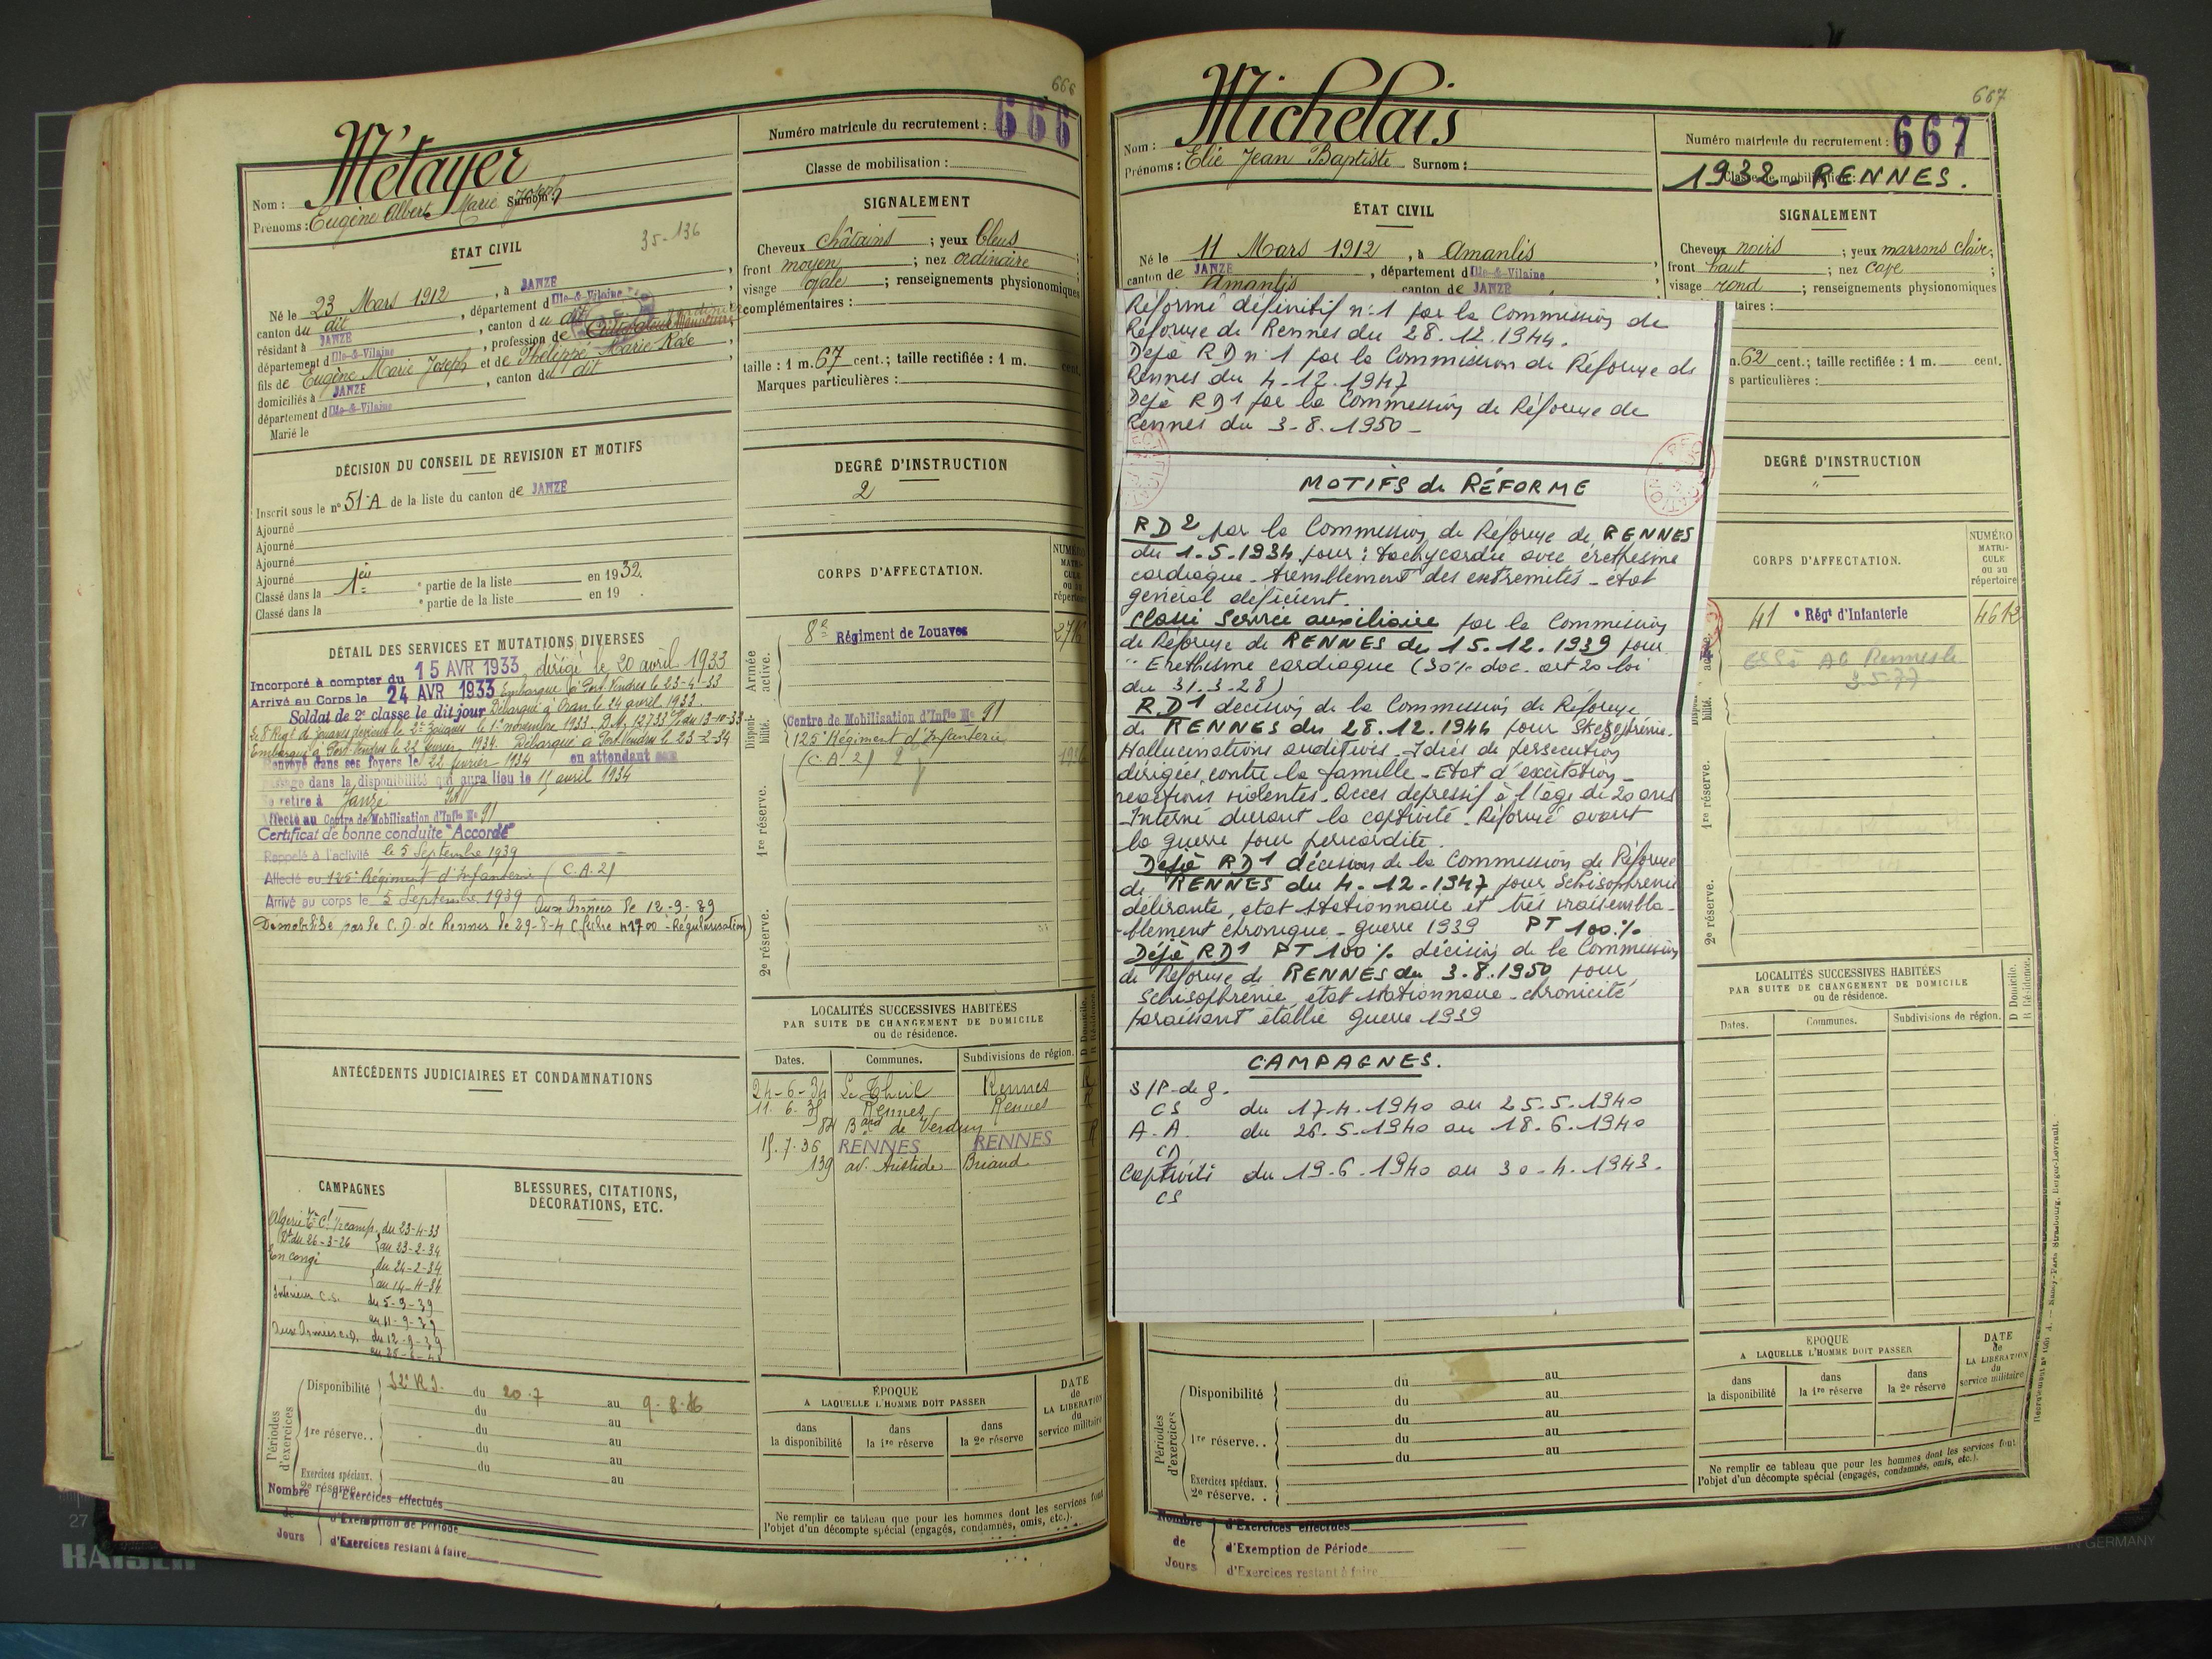 666
Métayer
Nom :
Prénoms : Eugène Albert Marie Joseph Surnom :
Numéro matricule du recrutement : 666
Classe de mobilisation :
ÉTAT CIVIL
35-136
Né le 23 Mars 1912, à JANZÉ,
canton du dit, département d'Ille-&-Vilaine
résidant à JANZÉ, canton du dit
département d'Ille-&-Vilaine, profession de
fils de Eugène Marie Joseph et de Thélippé Marie Rose
domiciliés à JANZÉ, canton du dit,
département d'Ille-&-Vilaine
Marié le
SIGNALEMENT
Cheveux châtains ; yeux bleus
front moyen ; nez ordinaire ;
visage ovale ; renseignements physionomiques
complémentaires :
taille : 1 m. 67 cent.; taille rectifiée : 1 m. cent.
Marques particulières :
DÉCISION DU CONSEIL DE REVISION ET MOTIFS
Inscrit sous le n° 51-A de la liste du canton de JANZÉ
Ajourné
Ajourné
Ajourné
Ajourné
Classé dans la 1ère partie de la liste en 1932.
Classé dans la e partie de la liste en 19 .
DEGRÉ D'INSTRUCTION
2
CORPS D'AFFECTATION.
NUMÉRO MATRI- CULE ou au répertoire
Armée active.
8e Régiment de Zouaves
Disponibilité.
Centre de Mobilisation d'Infie No 91
125e Régiment d'Infanterie
(C.A. 2)
1re réserve.
2e réserve.
DÉTAIL DES SERVICES ET MUTATIONS DIVERSES
Incorporé à compter du 15 AVR 1933 dirigé le 20 avril 1933
Arrivé au Corps le 24 AVR 1933 Embarqué à Port-Vendres le 23-4-33
Soldat de 2e classe le dit jour Débarqué à Oran le 24 avril 1933.
Le 8e Régt de Zouaves devient le 2e Zouaves le 1er novembre 1933. D.M. 12733 du 13-10-33
Embarqué à Port-Vendres le 22 février 1934. Débarqué à Port-Vendres le 23-2-34
Renvoyé dans ses foyers le 22 février 1934 en attendant son
passage dans la disponibilité qui aura lieu le 15 avril 1934
Se retire à Janzé
Affecté au Centre de Mobilisation d'Infie No 91
Certificat de bonne conduite "Accordé"
Rappelé à l'activité le 5 Septembre 1939
Affecté au 125e Régiment d'Infanterie (C.A.2)
Arrivé au corps le 5 Septembre 1939 Aux Armées le 12-9-39
Démobilisé par le C.D. de Rennes le
ANTÉCÉDENTS JUDICIAIRES ET CONDAMNATIONS
LOCALITÉS SUCCESSIVES HABITÉES
PAR SUITE DE CHANGEMENT DE DOMICILE
ou de résidence.
Dates. Communes. Subdivisions de région. D Domicile. R Résidence.
24-6-34 Le Theil Rennes R
11.6.35 Rennes Rennes R
84 Bard de Verdun
15.7.36 RENNES RENNES R
139 av. Aristide Briand
CAMPAGNES
Algérie du 23-4-33
au 23-2-34
En congé du 24-2-34
au 14-4-34
Intérieur C.S. du 5-9-39
au 11-9-39
Aux Armées C.D. du 12-9-39
BLESSURES, CITATIONS,
DÉCORATIONS, ETC.
Périodes d'exercices
Disponibilité du 20.7 au 9.8.36
du au
1re réserve.. du au
du au
du au
Exercices spéciaux. au
2e réserve
Nombre de Jours
d'Exercices effectués
d'Exemption de Période
d'Exercices restant à faire
ÉPOQUE
A LAQUELLE L'HOMME DOIT PASSER
dans la disponibilité
dans la 1re réserve
dans la 2e réserve
DATE de LA LIBÉRATION du service militaire
Ne remplir ce tableau que pour les hommes dont les services font
l'objet d'un décompte spécial (engagés, condamnés, omis, etc.).
667
Michelais
Nom :
Prénoms : Elie Jean Baptiste Surnom :
Numéro matricule du recrutement : 667
Classe de mobilisation :
1932 - RENNES.
ÉTAT CIVIL
Né le 11 Mars 1912, à Amanlis,
canton de JANZÉ, département d'Ille-&-Vilaine
Amanlis canton de JANZÉ
SIGNALEMENT
Cheveux noirs ; yeux marrons clairs ;
front haut ; nez cave ;
visage rond ; renseignements physionomiques
taires :
62 cent.; taille rectifiée : 1 m. cent.
s particulières :
Réformé définitif n°1 par la Commission de
Réforme de Rennes du 28.12.1944.
Déjà RD n°1 par la Commission de Réforme de
Rennes du 4-12.1947
Déjà RD1 par la Commission de Réforme de
Rennes du 3-8.1950 -
MOTIFS de RÉFORME
RD2 par la Commission de Réforme de RENNES
du 1.5.1934 pour : tachycardie avec éréthisme
cardiaque - tremblement des extrémités - état
général déficient.
Classé Service auxiliaire par la Commission
de Réforme de RENNES du 15.12.1939 pour
"Eréthisme cardiaque (30% doc. art 20 loi
du 31.3.28)
RD1 décision de la Commission de Réforme
de RENNES du 28.12.1944 pour Skezophrénie.
Hallucinations auditives - Idées de persécution
dirigées contre la famille - Etat d'excitation -
réactions violentes. Accès dépressif à l'âge de 20 ans
Interné durant la captivité - Réformé avant
la guerre pour péricardite.
Déjà RD1 décision de la Commission de Réforme
de RENNES du 4.12.1947 pour Schisophrénie
délirante, état stationnaire et très vraisembla-
-blement chronique - guerre 1939 PT 100%
Déjà RD1 PT 100% décision de la Commission
de Réforme de RENNES du 3.8.1950 pour
Schisophrénie état stationnaire - chronicité
paraissant établie guerre 1939
CAMPAGNES.
S/P. de g.
CS du 17.4.1940 au 25.5.1940
A.A. du 26.5.1940 au 18.6.1940
CD
Captivité du 19.6.1940 au 30.4.1943.
CS
DEGRÉ D'INSTRUCTION
"
CORPS D'AFFECTATION.
NUMÉRO MATRI- CULE ou au répertoire
41e Régt d'Infanterie 4612
1re réserve.
2e réserve.
LOCALITÉS SUCCESSIVES HABITÉES
PAR SUITE DE CHANGEMENT DE DOMICILE
ou de résidence.
Dates. Communes. Subdivisions de région. D Domicile. R Résidence.
Périodes d'exercices
Disponibilité du au
du au
1re réserve.. du au
du au
du au
Exercices spéciaux.
2e réserve..
Nombre de Jours
d'Exercices effectués
d'Exemption de Période
d'Exercices restant à faire
ÉPOQUE
A LAQUELLE L'HOMME DOIT PASSER
dans la disponibilité
dans la 1re réserve
dans la 2e réserve
DATE de LA LIBÉRATION du service militaire
Ne remplir ce tableau que pour les hommes dont les services font
l'objet d'un décompte spécial (engagés, condamnés, omis, etc.).
27
KAISER
MADE IN GERMANY